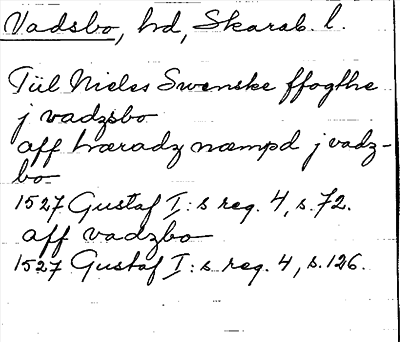 Vadsbo, hd, Skarab. l.
Tiil Nieles Swenske ffogthe
j vadzsbo
aff hæradz næmpd j vadz-
bo
1527 Gustaf I:s reg. 4, s. 72.
aff vadzbo
1527 Gustaf I:s reg. 4, s. 126.